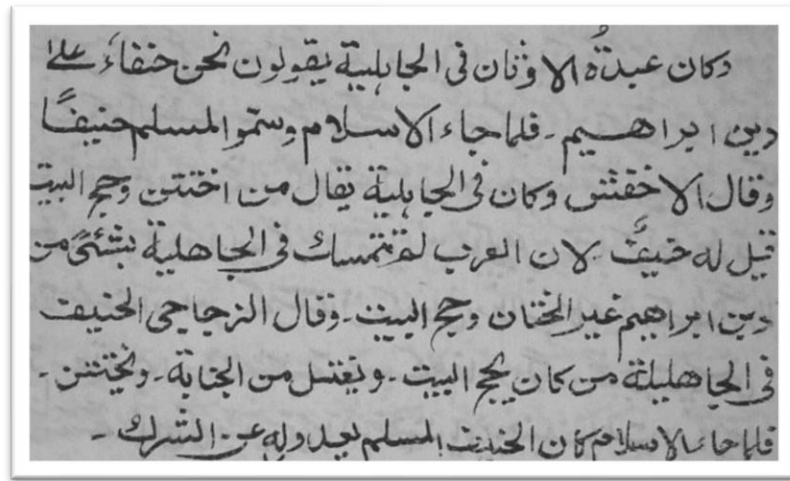 وكان عبدةُ الاوثان فى الجاہلية يقولون نحن حنفاءَ علےٰ
دين ابراهــيم ـ فلما جاء الاسلام وسمّو المسلم حنيفًا
وقال الاخفش وكان فى الجاہلية يقال من اختتن وحج البيت
قيل له حنيفٌ لان العرب لم تتمسك فى الجاهلية بشئىً من
دين ابراہیم غير الختان وحج البيت ـ وقال الزجاجى الحنيف
فى الجاهليلة من كان يحج البيت ـ ويغتسل من الجنابة ـ ويختتن ـ
فلما جاء الاسلام كان الحنيف المسلم لعدوله عن الشرك ـ